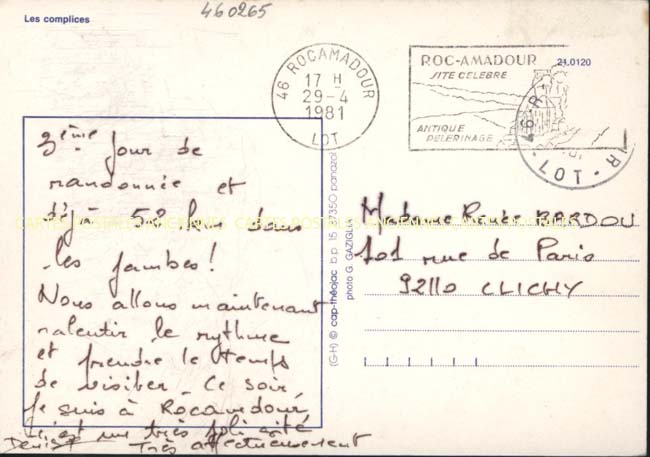 Les complices
460265
46 ROCAMADOUR
17 H
29-4
1981
LOT
ROC-AMADOUR
SITE CELEBRE
ANTIQUE
PELERINAGE
21.0120
46-R
R · LOT
3ème jour de
randonnée et
déjà 58 km dans
les jambes!
Nous allons maintenant
ralentir le rythme
et prendre le temps
de visiter. Ce soir,
je suis à Rocamadour,
c'est une très joli cité
Très affectueusement
Denise
(G-H) © cap-théojac b.p. 15 87350 panazol
photo G. GAZIGL
Madame Renée BARDOU
101 rue de Paris
92110 CLICHY
CARTES POSTALES ANCIENNES CARTES POSTALES ANCIENNES